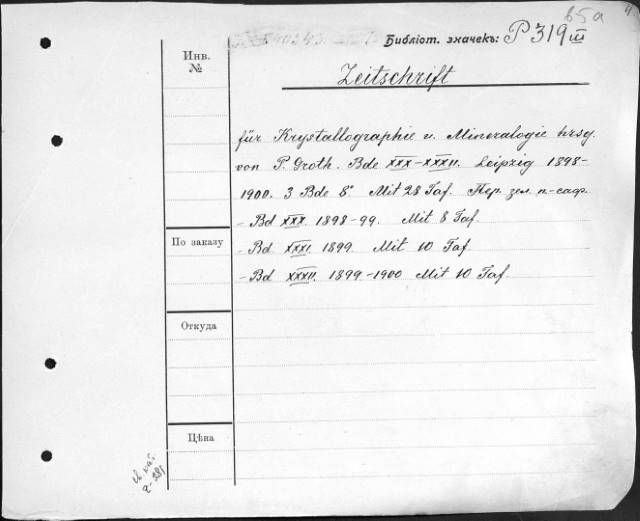 65а
Библіот. значекъ: P 319 III
Инв.
№
Zeitschrift
für Krystallographie u. Mineralogie hrsg.
von P. Groth. Bde XXX-XXXII. Leipzig 1898-
1900. 3 Bde 8°. Mit 28 Taf. Пер. зел. п-саф.
- Bd XXX. 1898-99. Mit 8 Taf.
По заказу
- Bd XXXI. 1899. Mit 10 Taf
- Bd XXXII. 1899-1900 Mit 10 Taf.
Откуда
Цѣна